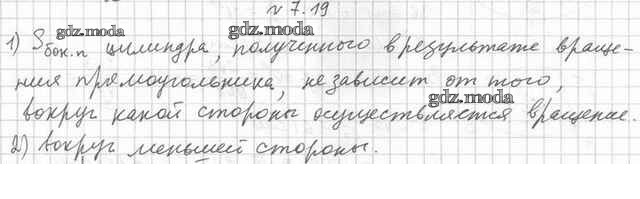 № 7.19
gdz.moda
gdz.moda
1) Sбок.п цилиндра, полученного в результате враще-
ния прямоугольника, не зависит от того,
gdz.moda
вокруг какой стороны осуществляется вращение.
2) вокруг меньшей стороны.